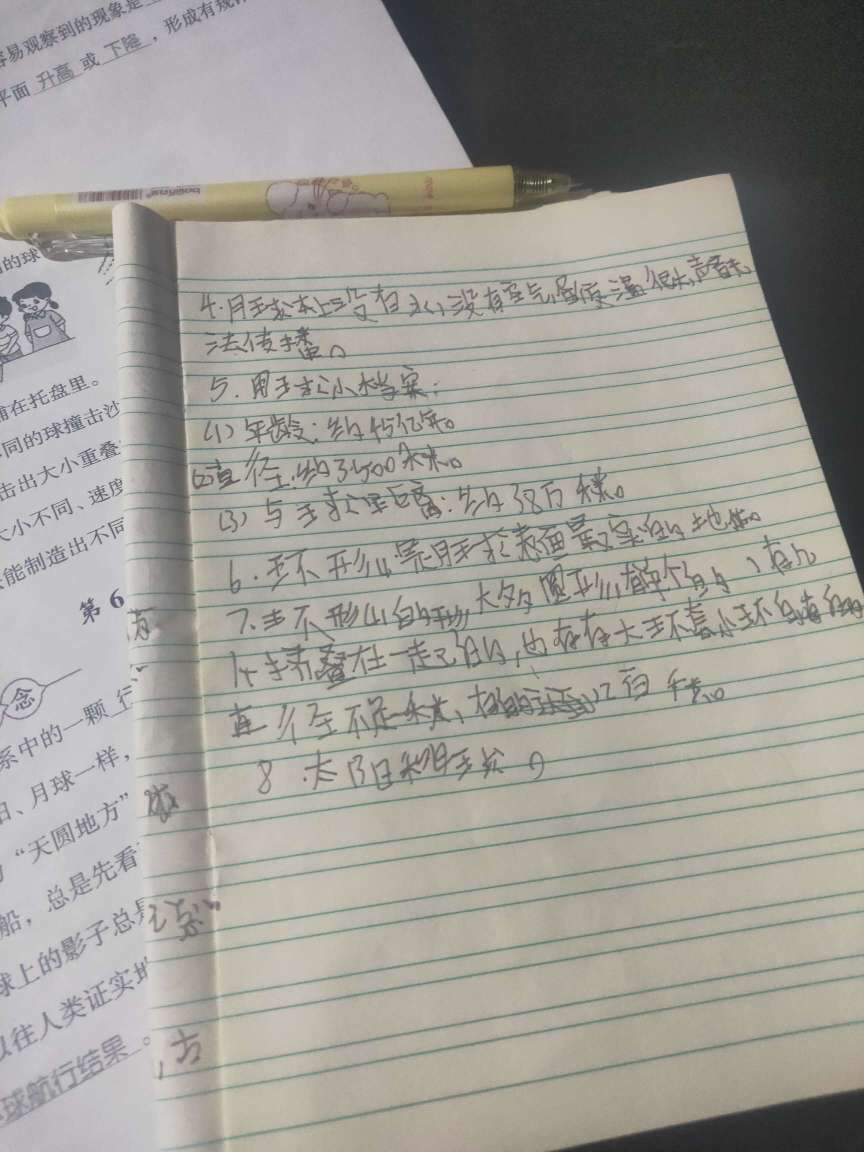 易观察到的现象是
平面 升高 或 下降 ，形成有规
的球
在托盘里。
同的球撞击沙
击出大小重叠
大小不同、速度
能制造出不同
第 6
念
系中的一颗 行
、月球一样，
“天圆地方”
船，总是先看
球上的影子总是
以往人类证实地
球航行结果 。
4.月球上没有水,没有空气,昼夜温 很大,声音无
法传播。
5.月球小档案:
(1)年龄:约45亿年。
(2)直径:约3500千米。
(3)与 球距离:约38万千米。
6.环形山是月球表面最 的地 。
7.环形山的 大多圆形,有单个的,有几
个 叠在一起的,也存在大环套小环的,有的
直径不足一米, 百千米。
8.太阳和月球。